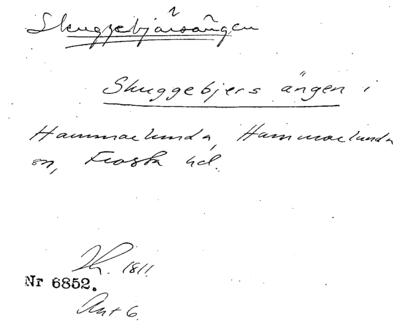 Skuggebjärsängen
Skuggebjers ängen i
Hammarlunda, Hammarlunda
sn, Frosta hd.
1811.
Nr 6852.
Akt 6.